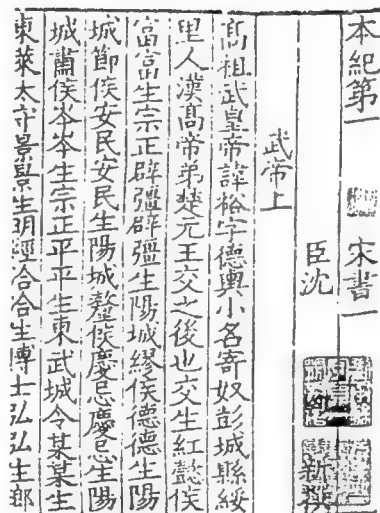 本紀第一 宋書一
臣沈 新撰
武帝上
髙祖武皇帝諱裕字德輿小名寄奴彭城縣綏
里人漢髙帝弟楚元王交之後也交生紅懿侯
富富生宗正辟彊辟彊生陽城繆侯德德生陽
城節侯安民安民生陽城釐侯慶忌慶忌生陽
城肅侯岑岑生宗正平平生東武城令某某生
東萊太守景景生明經洽洽生博士弘弘生郎